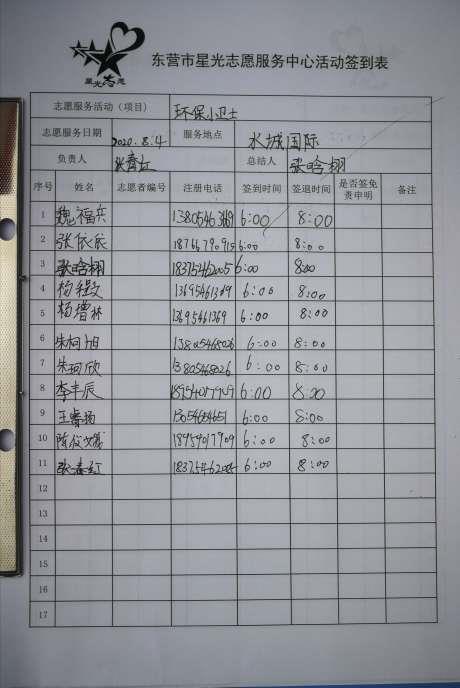 星光志愿
东营市星光志愿服务中心活动签到表
志愿服务活动（项目） 环保小卫士
志愿服务日期 2020.8.4 服务地点 水城国际
负责人 张春红 总结人 张晗栩
序号 姓名 志愿者编号 注册电话 签到时间 签退时间 是否签免责申明 备注
1 魏福兵 6:00 8:00
2 张依辰 18766790915 6:00 8:00
3 张晗栩 18375462005 6:00 8:00
4 杨 13695461369 6:00 8:00
5 杨增林 13695461369 6:00 8:00
6 朱柯旭 13805468026 6:00 8:00
7 朱珂欣 13805468026 6:00 8:00
8 李丰辰 18954017909 6:00 8:00
9 王睿扬 6:00 8:00
10 陈 6:00 8:00
11 张春红 18375462005 6:00 8:00
12
13
14
15
16
17